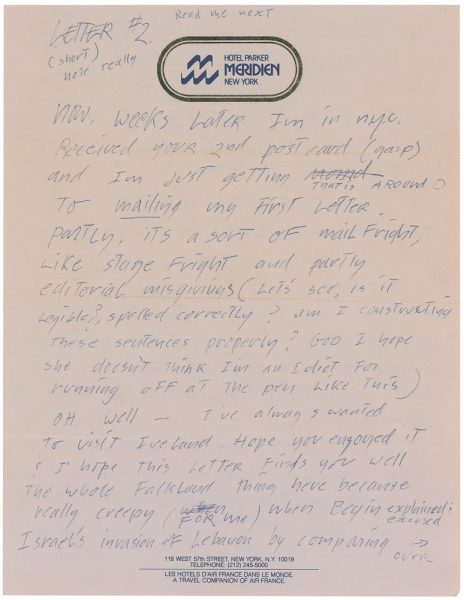 Read me next
LETTER #2
(short)
note really
HOTEL PARKER
MERIDIEN
NEW YORK
Now, weeks later I'm in nyc.
Received your 2nd post card (gasp)
and I'm just getting
That is AROUND
To mailing my first Letter.
partly, its a sort of mail fright,
Like stage fright and partly
editorial misgivings (Let's see, is it
legible?, spelled correctly? am I constructing
these sentences properly? God I hope
she doesn't think I'm an Idiot for
running off at the pen like this)
OH well — I've always wanted
to visit Ireland. Hope you enjoyed it
& I hope this Letter finds you well
The whole Falkland thing here became
really creepy (FOR me) when Begin explained &
excused
Israel's invasion of Lebanon by comparing →
over
118 WEST 57th STREET, NEW YORK, N.Y. 10019
TELEPHONE: (212) 245-5000
LES HOTELS D'AIR FRANCE DANS LE MONDE.
A TRAVEL COMPANION OF AIR FRANCE.